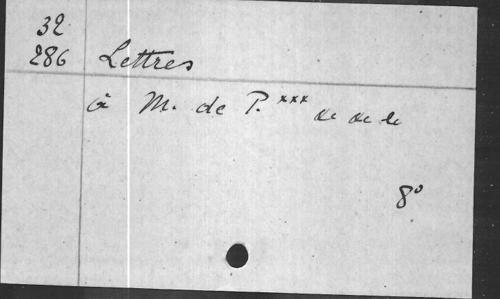 32
286 Lettres
à M. de P. xxx
8°